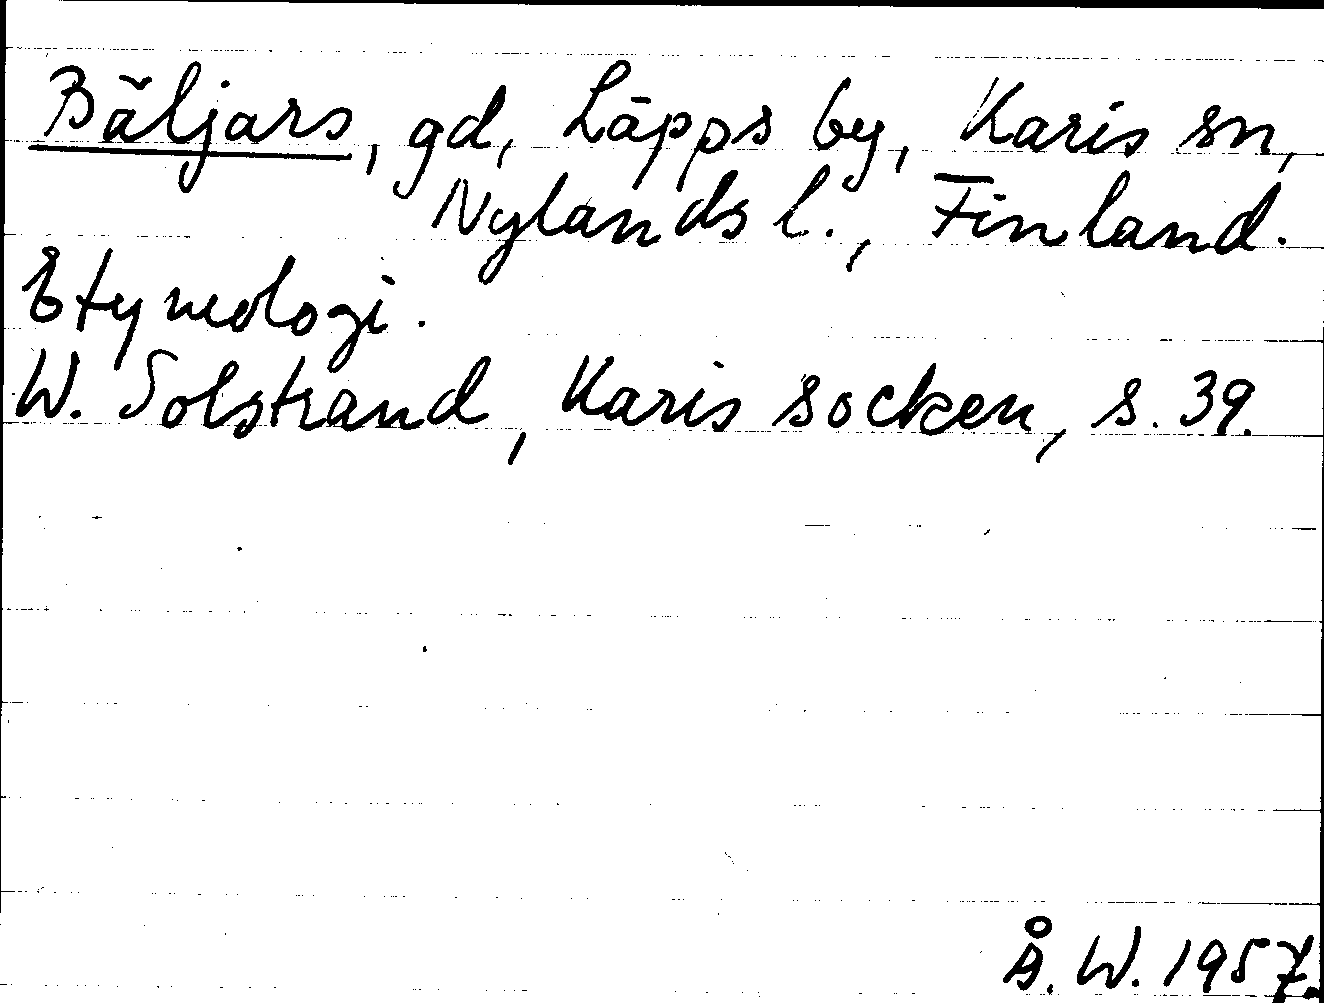 Bäljars, gd, Läpps by, Karis sn,
Nylands l., Finland.
Etymologi.
W. Solstrand, Karis socken, s. 39.
Å. W. 1957.